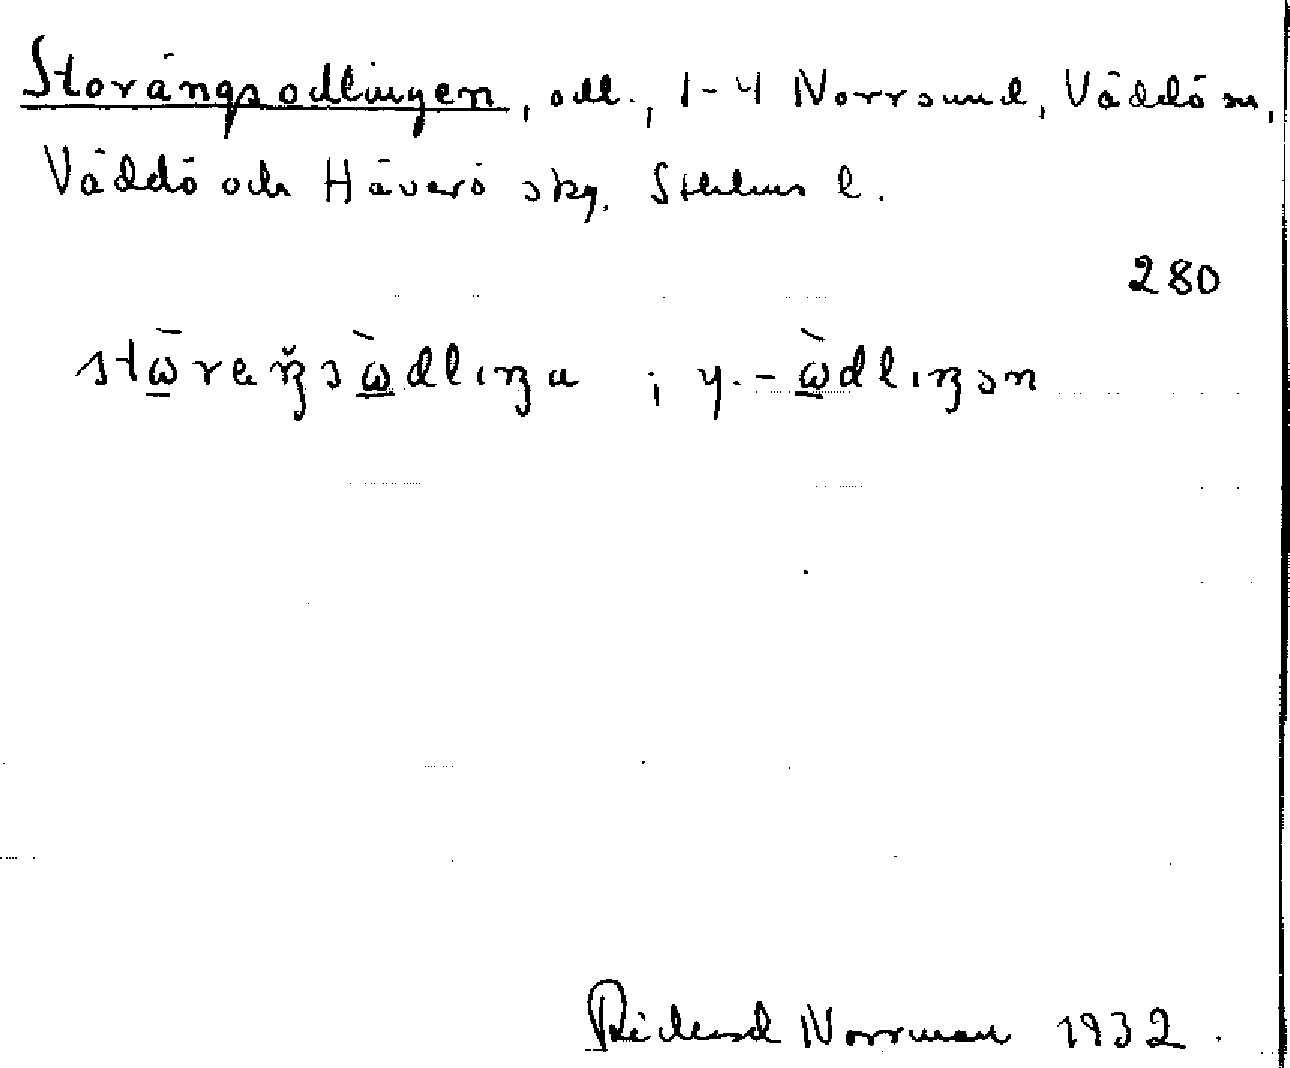 Storängsodlingen, odl., 1-4 Norrsund, Väddö sn,
Väddö och Häverö skg. Sthlms l.
280
stω̄reŋsὼdlıŋa ; y. -ὼdlıŋən
Rickard Norrman 1932.